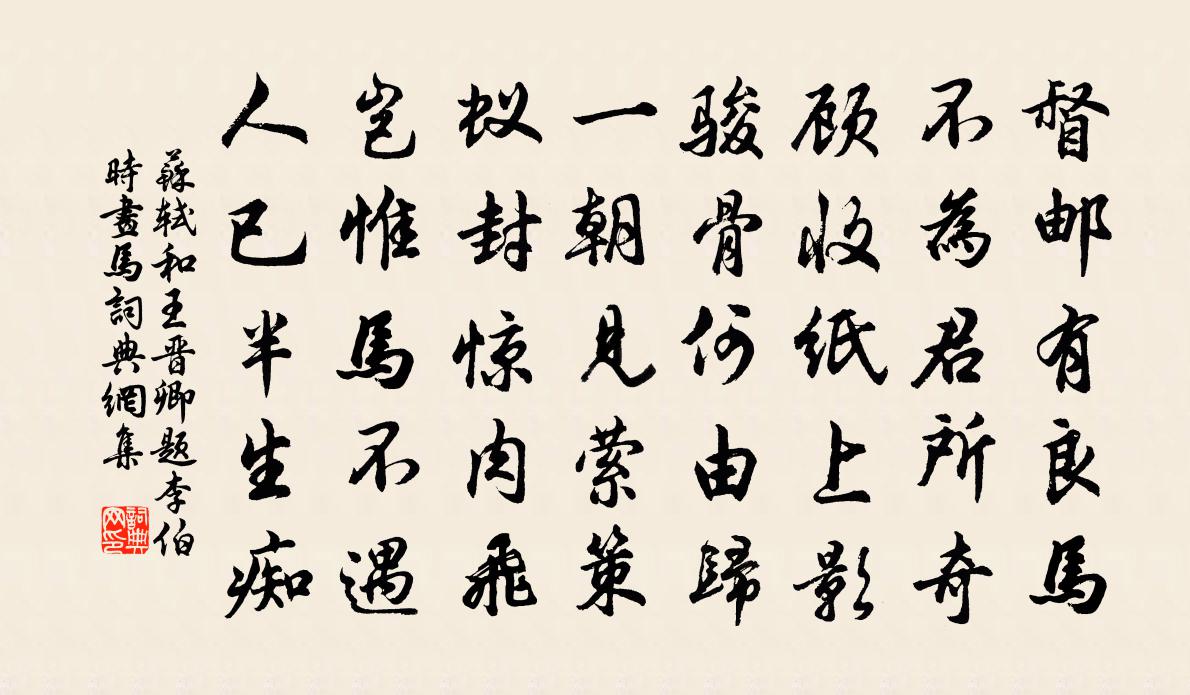 督邮有良馬
不為君所奇
顾收紙上影
骏骨何由歸
一朝見萦策
蚁封惊肉飛
岂惟馬不遇
人已半生痴
蘇轼和王晋卿題李伯
時畫馬詞典網集
詞典网印